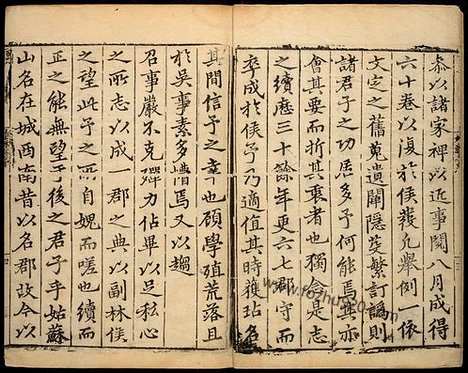 叅以諸家裨以近事閱八月成得
六十卷以復於侯凢凡舉例一依
文定之舊蒐遺闡隱芟繁訂譌則
諸君子之功居多予何能焉其亦
會其要而折其衷者也獨念是志
之續歷三十餘年更六七郡守而
卒成於侯予乃適值其時獲玷名
其間信予之幸也顧學殖荒落且
於吳事素多懵焉又以趨
召事嚴不克殫力佔畢以足私心
之所志以成一郡之典以副林侯
之望此予之所自媿而嗟也續而
正之能無望于後之君子乎姑蘇
山名在城西南昔以名郡故今以
www.fozhu920.com